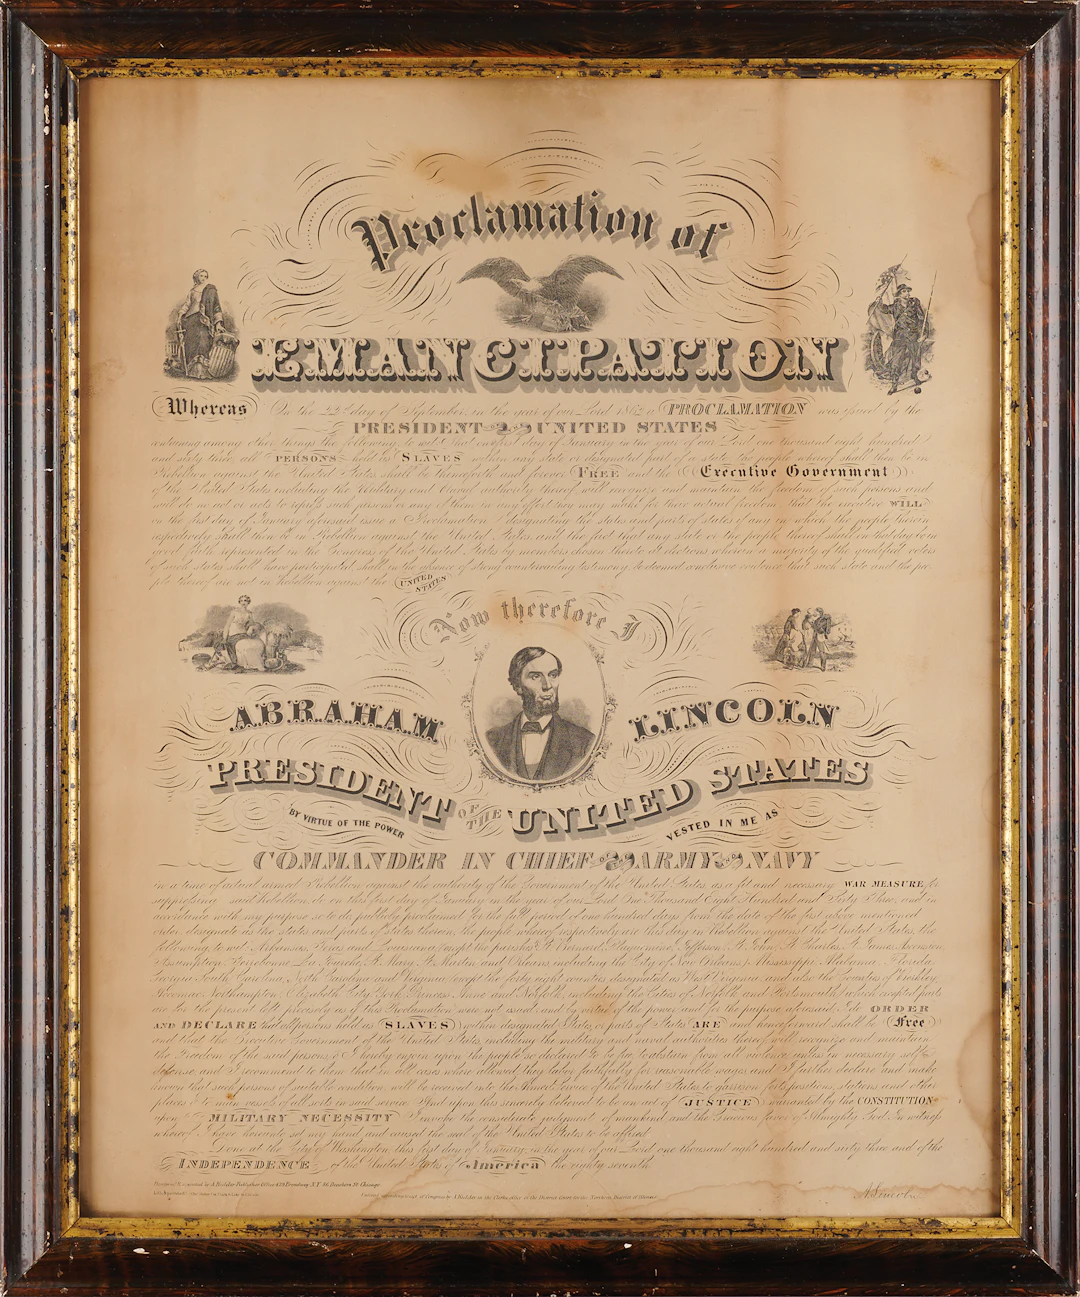 Proclamation of
EMANCIPATION
Whereas On the 22d day of September, in the year of our Lord 1862 a PROCLAMATION was issued by the
PRESIDENT UNITED STATES
containing among other things the following to wit: That on the first day of January in the year of our Lord one thousand eight hundred
and sixty three, all PERSONS held as SLAVES within any state or designated part of a state the people whereof shall then be in
Rebellion against the United States shall be thenceforth and forever FREE and the Executive Government
of the United States including the Military and Naval authority thereof will recognize and maintain the freedom of such persons and
will do no act or acts to repress such persons or any of them in any effort they may make for their actual freedom that the executive WILL
on the first day of January aforesaid issue a Proclamation designating the states and parts of states if any in which the people therein
respectively shall then be in Rebellion against the United States and the fact that any state or the people thereof shall on that day be in
good faith represented in the Congress of the United States by members chosen thereto at elections wherein a majority of the qualified voters
of such states shall have participated shall in the absence of strong countervailing testimony be deemed conclusive evidence that such state and the peo-
ple thereof are not in Rebellion against the UNITED STATES
Now therefore I
ABRAHAM LINCOLN
PRESIDENT OF THE UNITED STATES
BY VIRTUE OF THE POWER VESTED IN ME AS
COMMANDER IN CHIEF ARMY NAVY
in a time of actual armed Rebellion against the authority of the Government of the United States as a fit and necessary WAR MEASURE for
suppressing said Rebellion do on this first day of January in the year of our Lord One Thousand Eight Hundred and Sixty Three, and in
accordance with my purpose so to do publicly proclaimed for the full period of one hundred days from the date of the first above mentioned
order designate as the States and parts of states therein, the people whereof respectively are this day in Rebellion against the United States the
following to wit: Arkansas, Texas and Louisiana, except the parishes St Bernard, Plaquemine, Jefferson, St John, St Charles, St James, Ascension
Assumption, Terrebonne, La Fourche, St Mary, St Martin and Orleans, including the City of New Orleans; Mississippi, Alabama, Florida,
Georgia, South Carolina, North Carolina and Virginia except the forty eight counties designated as West Virginia and also the Counties of Berkley,
Accomac, Northampton, Elizabeth City, York, Princess Anne and Norfolk, including the Cities of Norfolk and Portsmouth which excepted parts
are for the present left precisely as if this Proclamation were not issued and by virtue of the power and for the purpose aforesaid I do ORDER
AND DECLARE that all persons held as SLAVES within designated States or parts of States ARE and henceforward shall be Free
and that the Executive Government of the United States, including the military and naval authorities thereof will recognize and maintain
the Freedom of the said persons & I hereby enjoin upon the people so declared to be free to abstain from all violence, unless in necessary self-
defense and I recommend to them that in all cases where allowed they labor faithfully for reasonable wages and I further declare and make
known that such persons of suitable condition, will be received into the Armed service of the United States to garrison forts, positions, stations and other
places & to man vessels of all sorts in said service. And upon this sincerely believed to be an act of JUSTICE warranted by the CONSTITUTION
upon MILITARY NECESSITY I invoke the considerate judgment of mankind and the Gracious favor of Almighty God. In witness
whereof I have hereunto set my hand and caused the seal of the United States to be affixed
Done at the City of Washington this first day of January, in the year of our Lord one thousand eight hundred and sixty three and of the
INDEPENDENCE of the United States of America the eighty seventh
A. Lincoln